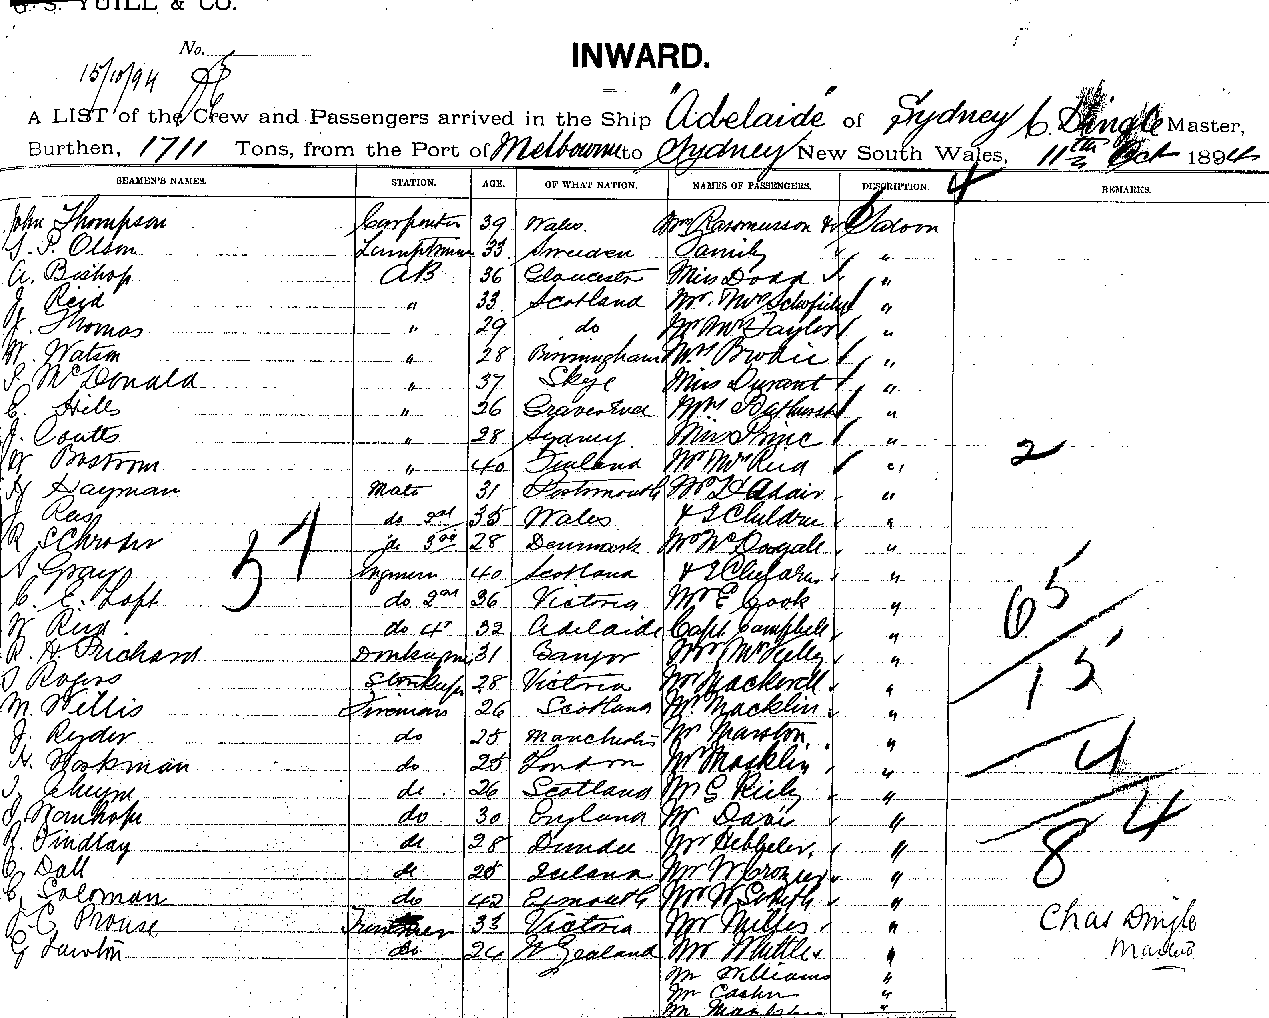 YUILL & CO.
No.
15/10/94
INWARD.
A LIST of the Crew and Passengers arrived in the Ship "Adelaide" of Sydney C. Dingle Master,
Burthen, 1711 Tons, from the Port of Melbourne to Sydney New South Wales, 11th Oct 1894
SEAMEN'S NAMES. STATION. AGE. OF WHAT NATION. NAMES OF PASSENGERS. DESCRIPTION. 4 REMARKS.
John Thompson Carpenter 39 Wales Mrs Rasmusson & Saloon
Olson Lamptrimmer 33 Sweden Family "
A. Bishop AB 36 Gloucester Miss Dodd "
J. Reid " 33 Scotland Mr. Mrs Schofield "
J. Thomas " 29 do Mr Mrs Taylor "
W. Watson " 28 Birmingham Mrs Brodie "
McDonald " 37 Skye Miss Durant "
Hills " 26 Gravesend Mrs Bathurst "
J. Coutts " 28 Sydney Miss "
W. Bostrom " 40 Finland Mr Mrs Reid " 2
Hayman Mate 31 Portsmouth Adair "
do 2nd 35 Wales & 2 Children "
R Schroder do 3rd 28 Denmark "
Gray Engineer 40 Scotland & 2 Children "
37
C. E. Loft do 2nd 36 Victoria Mr E Cook "
65
W. Reid do 4th 32 Adelaide Capt Campbell "
Prichard Donkeyman 31 Bangor Mr Mrs Kelly "
Rogers Storekeeper 28 Victoria "
15
M. Willis Fireman 26 Scotland Mr Macklin "
J. Ryder do 25 Manchester Mr Marston "
4
Workman do 25 London Mr Macklin "
do 26 Scotland Mr G "
do 30 England Mr Davis "
84
Findlay do 28 Dundee Mr "
Dall do 25 Ireland Mr W Crozier "
Soloman do 42 Exmouth Mr W Smith "
Prouse Trimmer 33 Victoria Mr "
Chas Dingle
Lawton do 24 N Zealand Mr "
Master
Mr Williams "
Mr "
Mr "